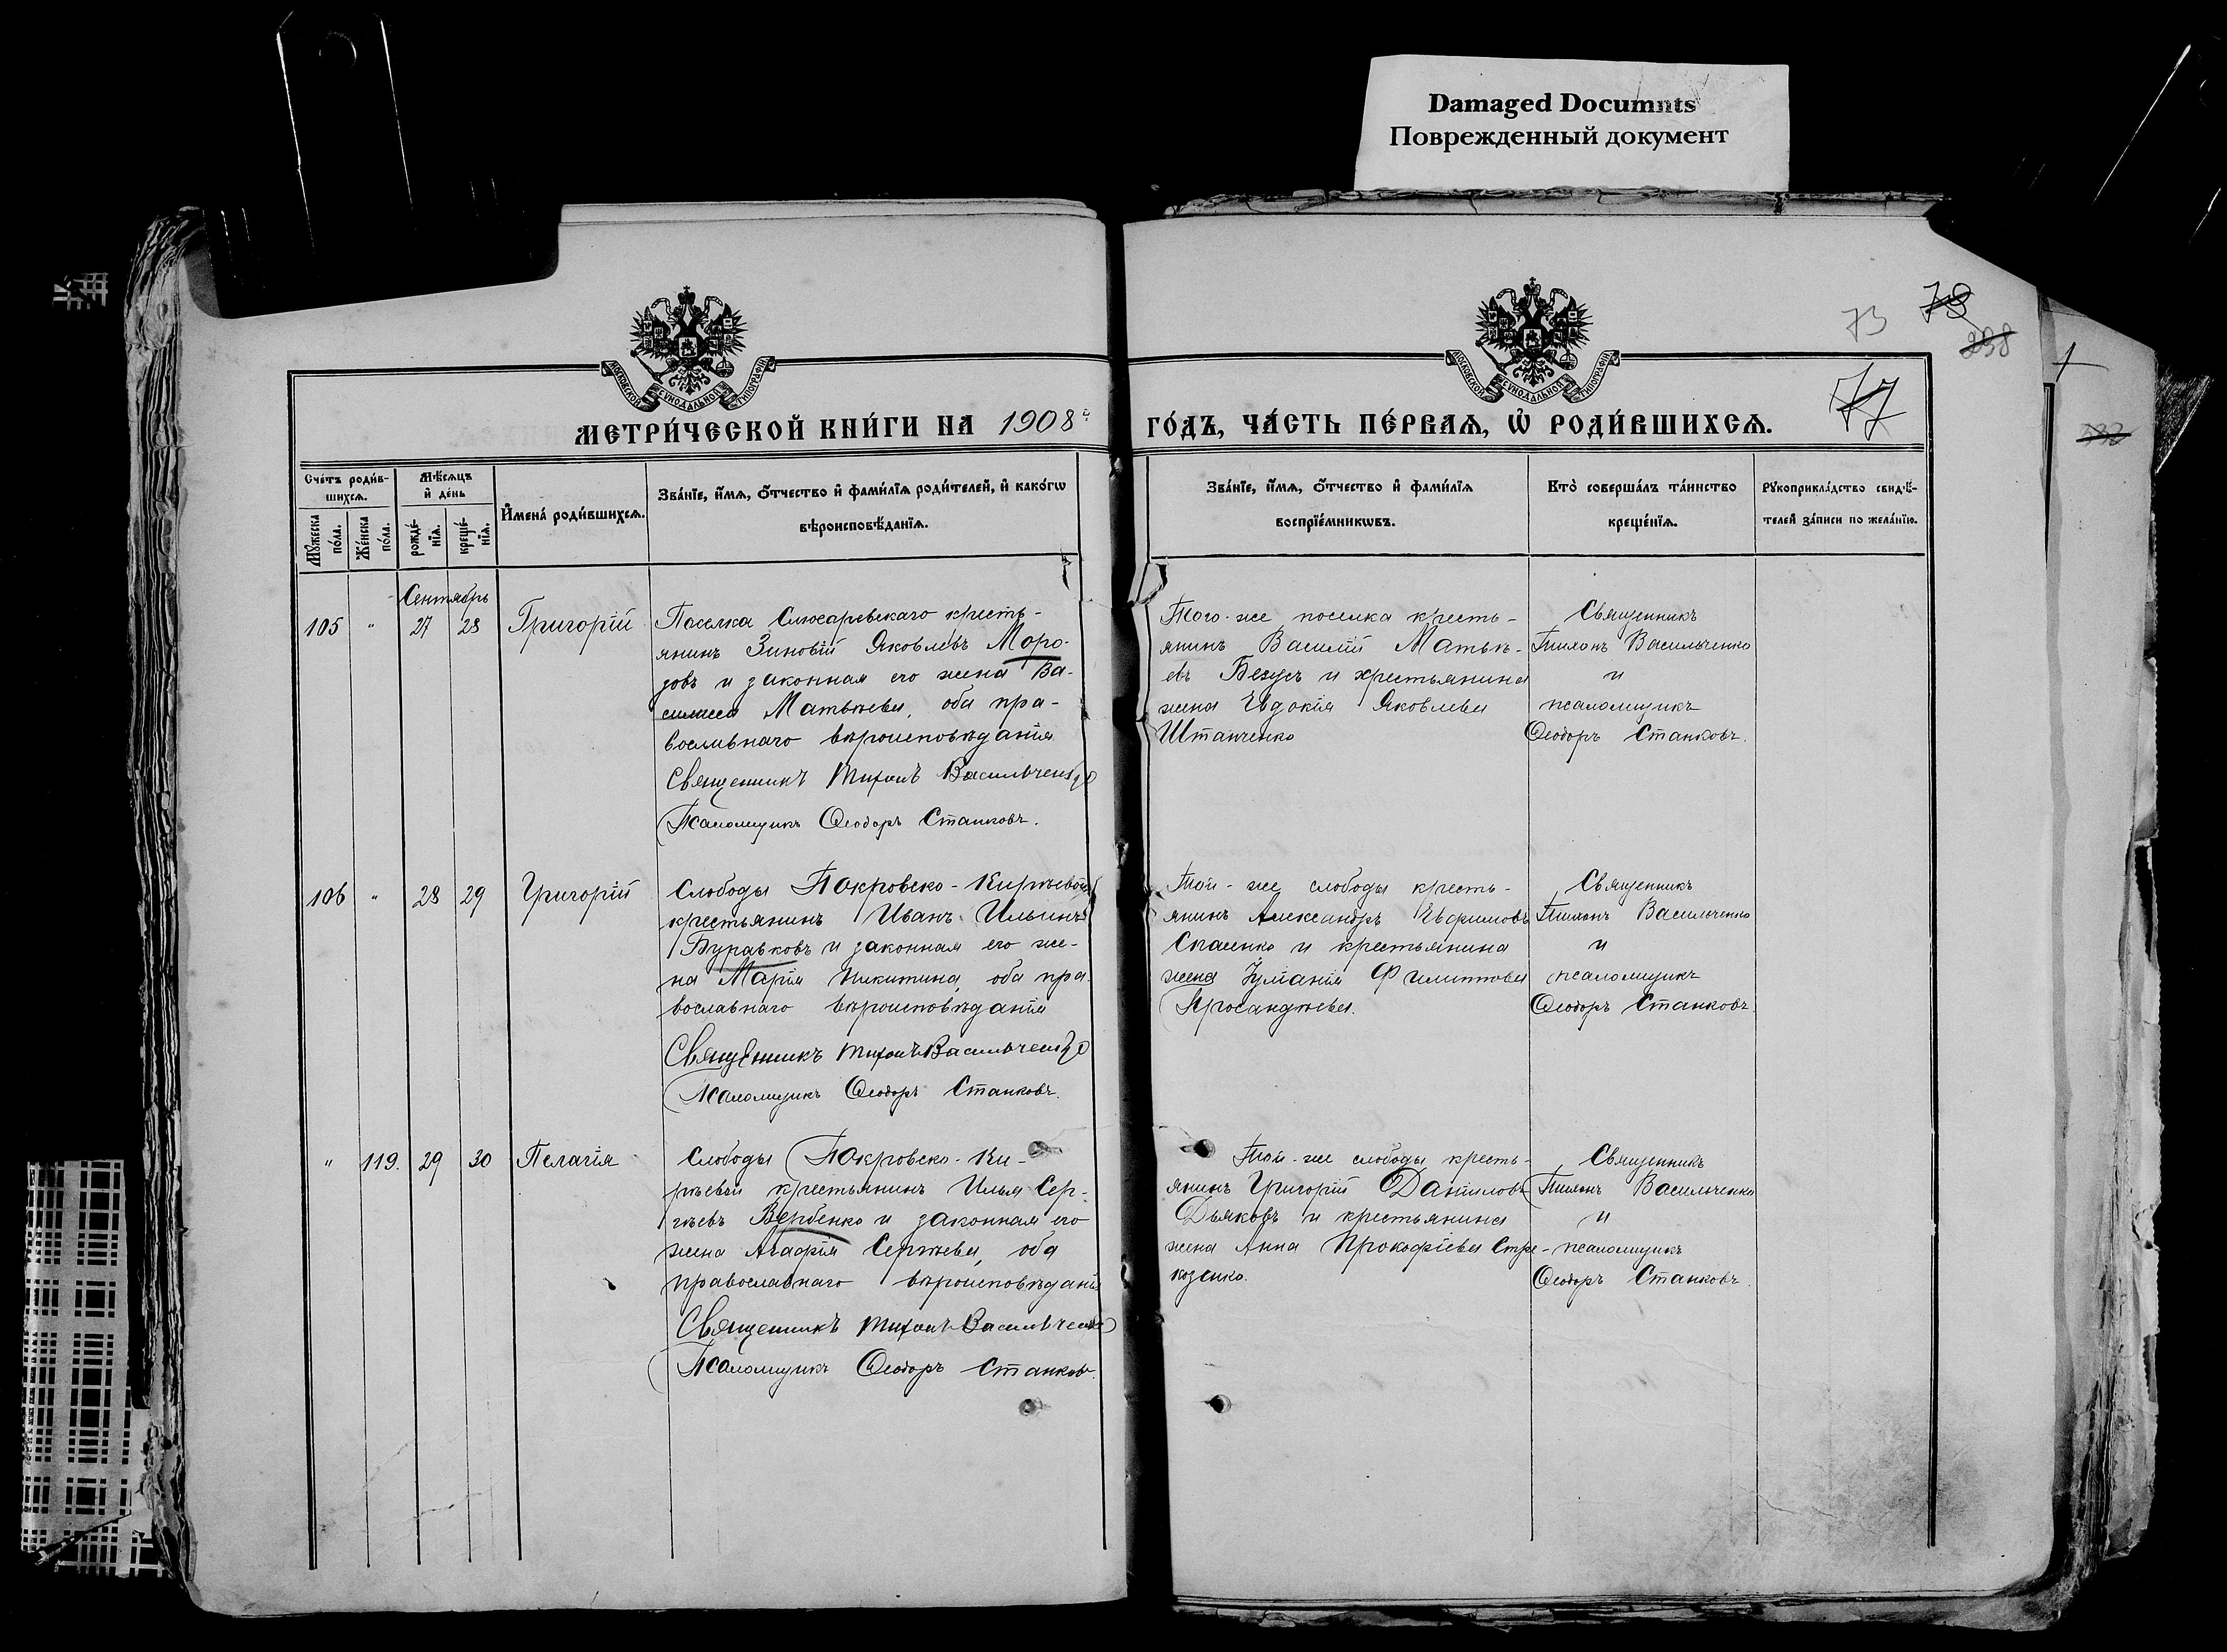 Damaged Documnts
Поврежденный документ
73
78
238
77
МОСКОВСКОЙ СѴНОДАЛЬНОЙ ТИПОГРАФІИ
МОСКОВСКОЙ СѴНОДАЛЬНОЙ ТИПОГРАФІИ
МЕТРИ́ЧЕСКОЙ КНИ́ГИ НА 1908й
ГО́ДЪ, ЧА́СТЬ ПЕ́РВАѦ, Ѡ҆ РОДИ́ВШИХСѦ.
Сче́тъ роди́в-
шихсѧ.
Мѣ́сѧцъ
и҆ де́нь
И҆мена́ роди́вшихсѧ.
Зва́нїе, и҆́мѧ, ѻ҆́тчество и҆ фами́лїѧ роди́телей, и҆ како́гѡ
вѣроисповѣ́данїѧ.
Мꙋ́жеска
по́ла.
Же́нска
по́ла.
рожде́-
нїѧ.
креще́-
нїѧ.
Зва́нїе, и҆́мѧ, ѻ҆́тчество и҆ фами́лїѧ
воспрїе́мникѡвъ.
Кто̀ соверша́лъ та́инство
креще́нїѧ.
Рꙋкоприкла́дство свидѣ́-
телей за́писи по жела́нїю.
Сентябрь
105 " 27 28 Григорій
Поселка кресть-
янинъ Зиновій Яковлевъ Моро-
зовъ и законная его жена Ва-
силиса Матвѣева, оба пра-
вославнаго вѣроисповѣданія
Священникъ Тихонъ Васильченко
Псаломщикъ Ѳеодоръ Станковъ.
Того-же поселка кресть-
янинъ Василій Матвѣ-
евъ Безусъ и крестьянина
жена Евдокія Яковлева
Штанченко
Священникъ
Тихонъ Васильченко
и
псаломщикъ
Ѳеодоръ Станковъ.
106 " 28 29 Григорій
Слободы Покровско-Кирѣевой
крестьянинъ Иванъ Ильинъ
Буравковъ и законная его же-
на Марія Никитина, оба пра-
вославнаго вѣроисповѣданія
Священникъ Тихонъ Васильченко
Псаломщикъ Ѳеодоръ Станковъ.
Той-же слободы кресть-
янинъ Александръ Евфимовъ
Спасенко и крестьянина
жена Іуліанія Филиппова
Священникъ
Тихонъ Васильченко
и
псаломщикъ
Ѳеодоръ Станковъ.
" 119. 29 30 Пелагія
Слободы Покровско-Ки-
рѣевой крестьянинъ Илья Сер-
гѣевъ Вербенко и законная его
жена Агафія Сергѣева, оба
православнаго вѣроисповѣданія
Священникъ Тихонъ Васильченко
Псаломщикъ Ѳеодоръ Станковъ.
Той-же слободы кресть-
янинъ Григорій Даніиловъ
Дьяковъ и крестьянина
жена Анна Прокофіева Стре-
козенко.
Священникъ
Тихонъ Васильченко
и
псаломщикъ
Ѳеодоръ Станковъ.